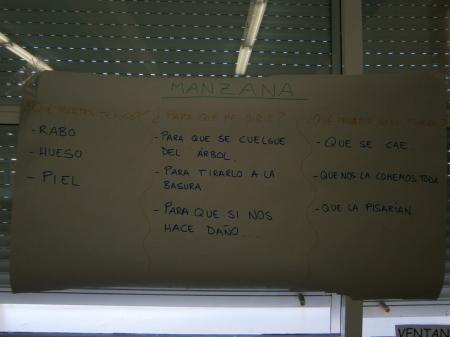 MANZANA
¿QUÉ PARTES TENGO?
- RABO
- HUESO
- PIEL
¿PARA QUE ME SIRVE?
- PARA QUE SE CUELGUE
DEL ÁRBOL.
- PARA TIRARLO A LA
BASURA.
- PARA QUE SI NOS
HACE DAÑO...
¿QUÉ SI NO
- QUE SE CAE
- QUE NOS LA COMEMOS TODA
- QUE LA PISARÍAN
VENTAN